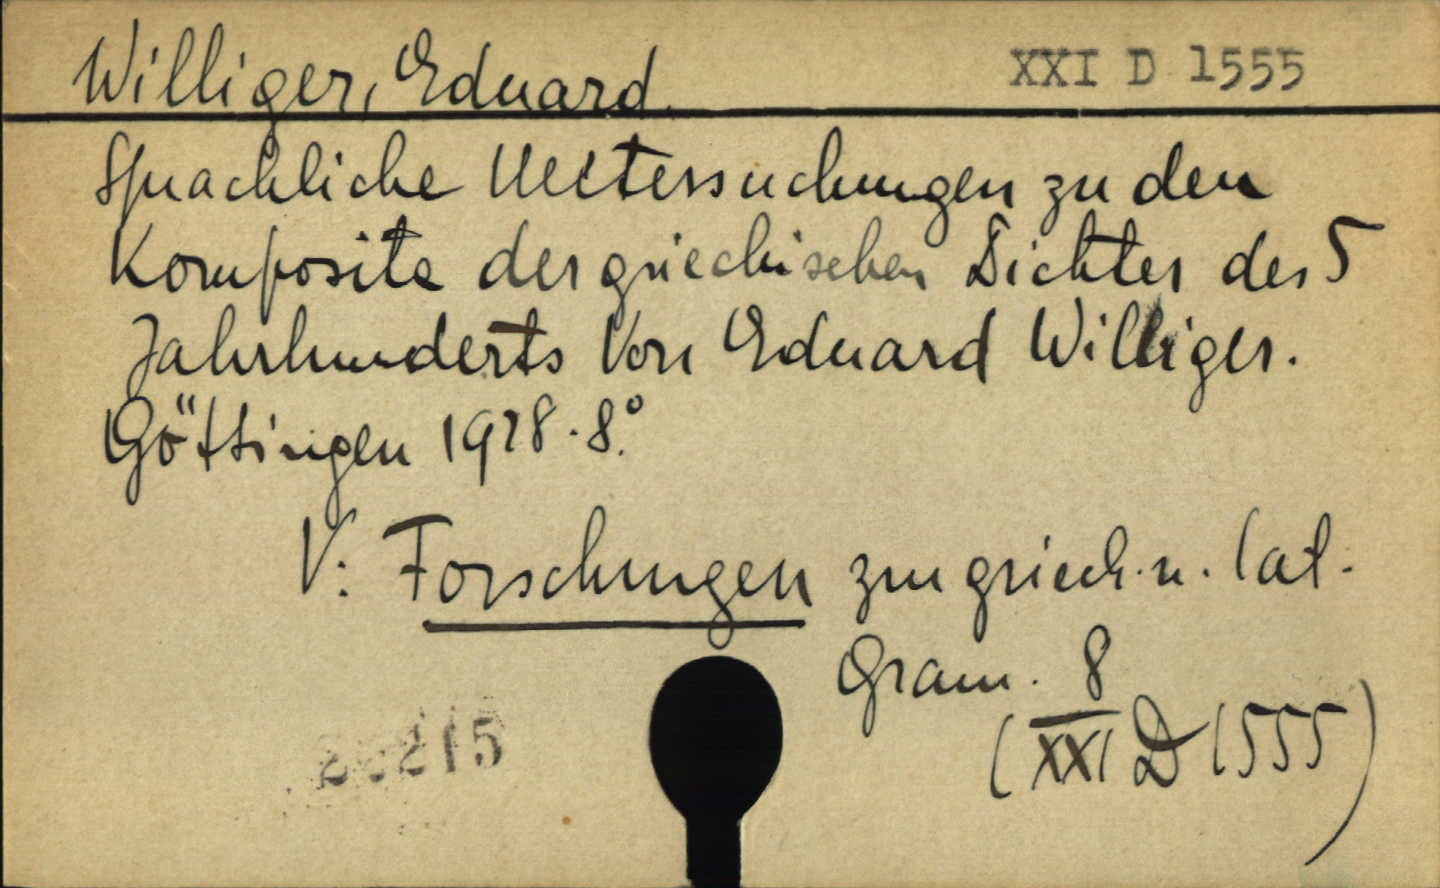 Williger, Eduard.
XXI D 1555
Sprachliche Untersuchungen zu den
Komposita der griechischen Dichter des 5
Jahrhunderts Von Eduard Williger.
Göttingen 1928. 8.°
V: Forschungen zur griech. u. lat.
Gram. 8
(XXI D 1555)